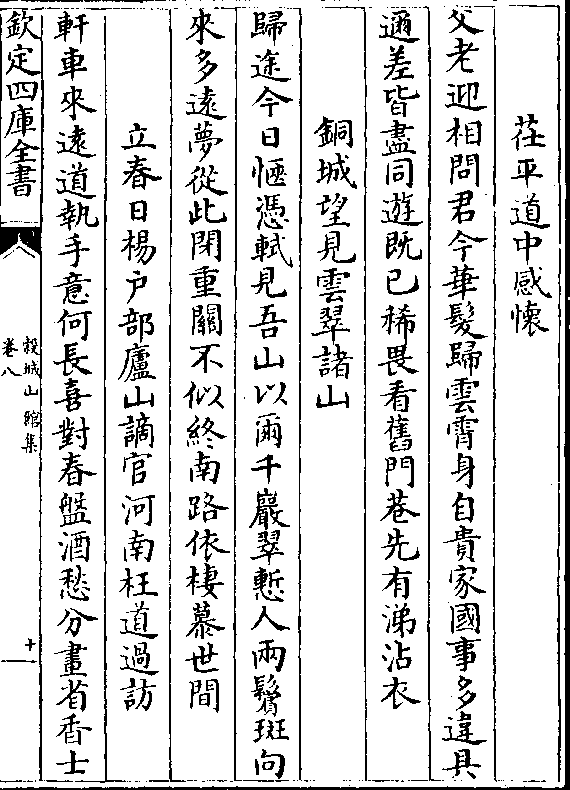 茌平道中感懷
父老迎相問君今華髮歸雲霄身自貴家國事多違具
邇差皆盡同遊既已稀畏看舊門巷先有涕沾衣
銅城望見雲翠諸山
歸途今日愜憑軾見吾山以爾千巖翠慙人兩鬢斑向
來多遠夢從此閉重關不似終南路依棲慕世間
立春日楊戶部廬山謫官河南枉道過訪
軒車來遠道執手意何長喜對春盤酒愁分畫省香士
欽定四庫全書
穀城山館集
卷八
十